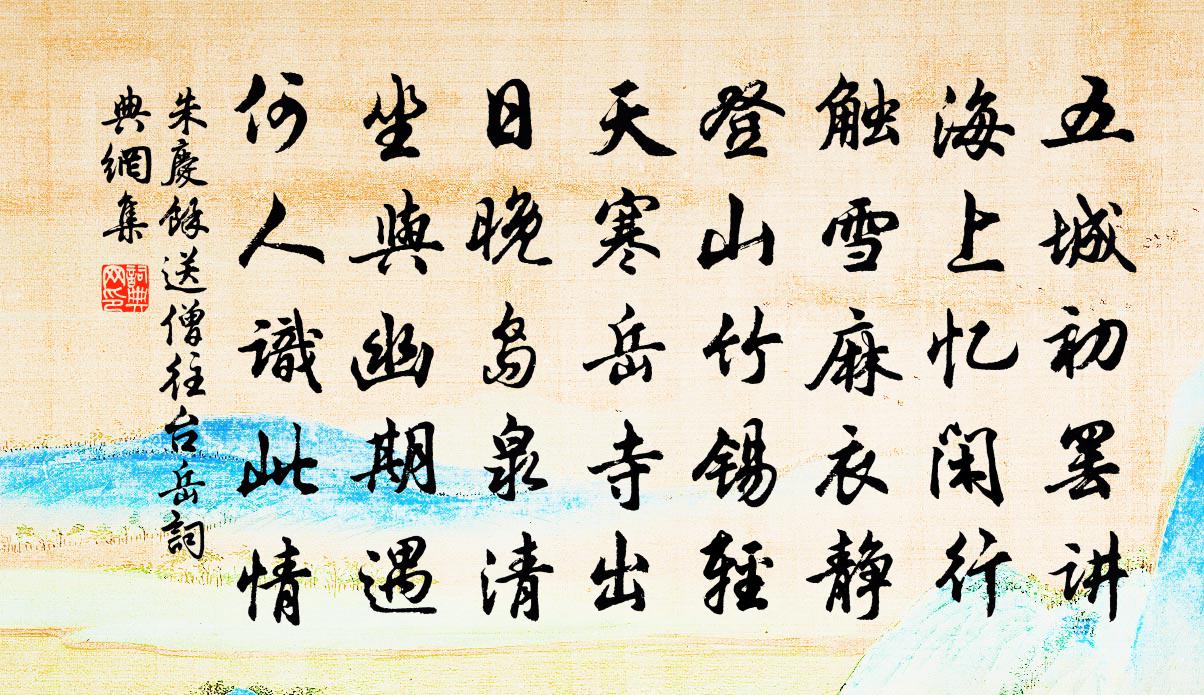 五城初罢讲
海上忆闲行
触雪麻衣静
登山竹锡轻
天寒岳寺出
日晚岛泉清
坐与幽期遇
何人识此情
朱庆余送僧往台岳词
典网集
词典
网印